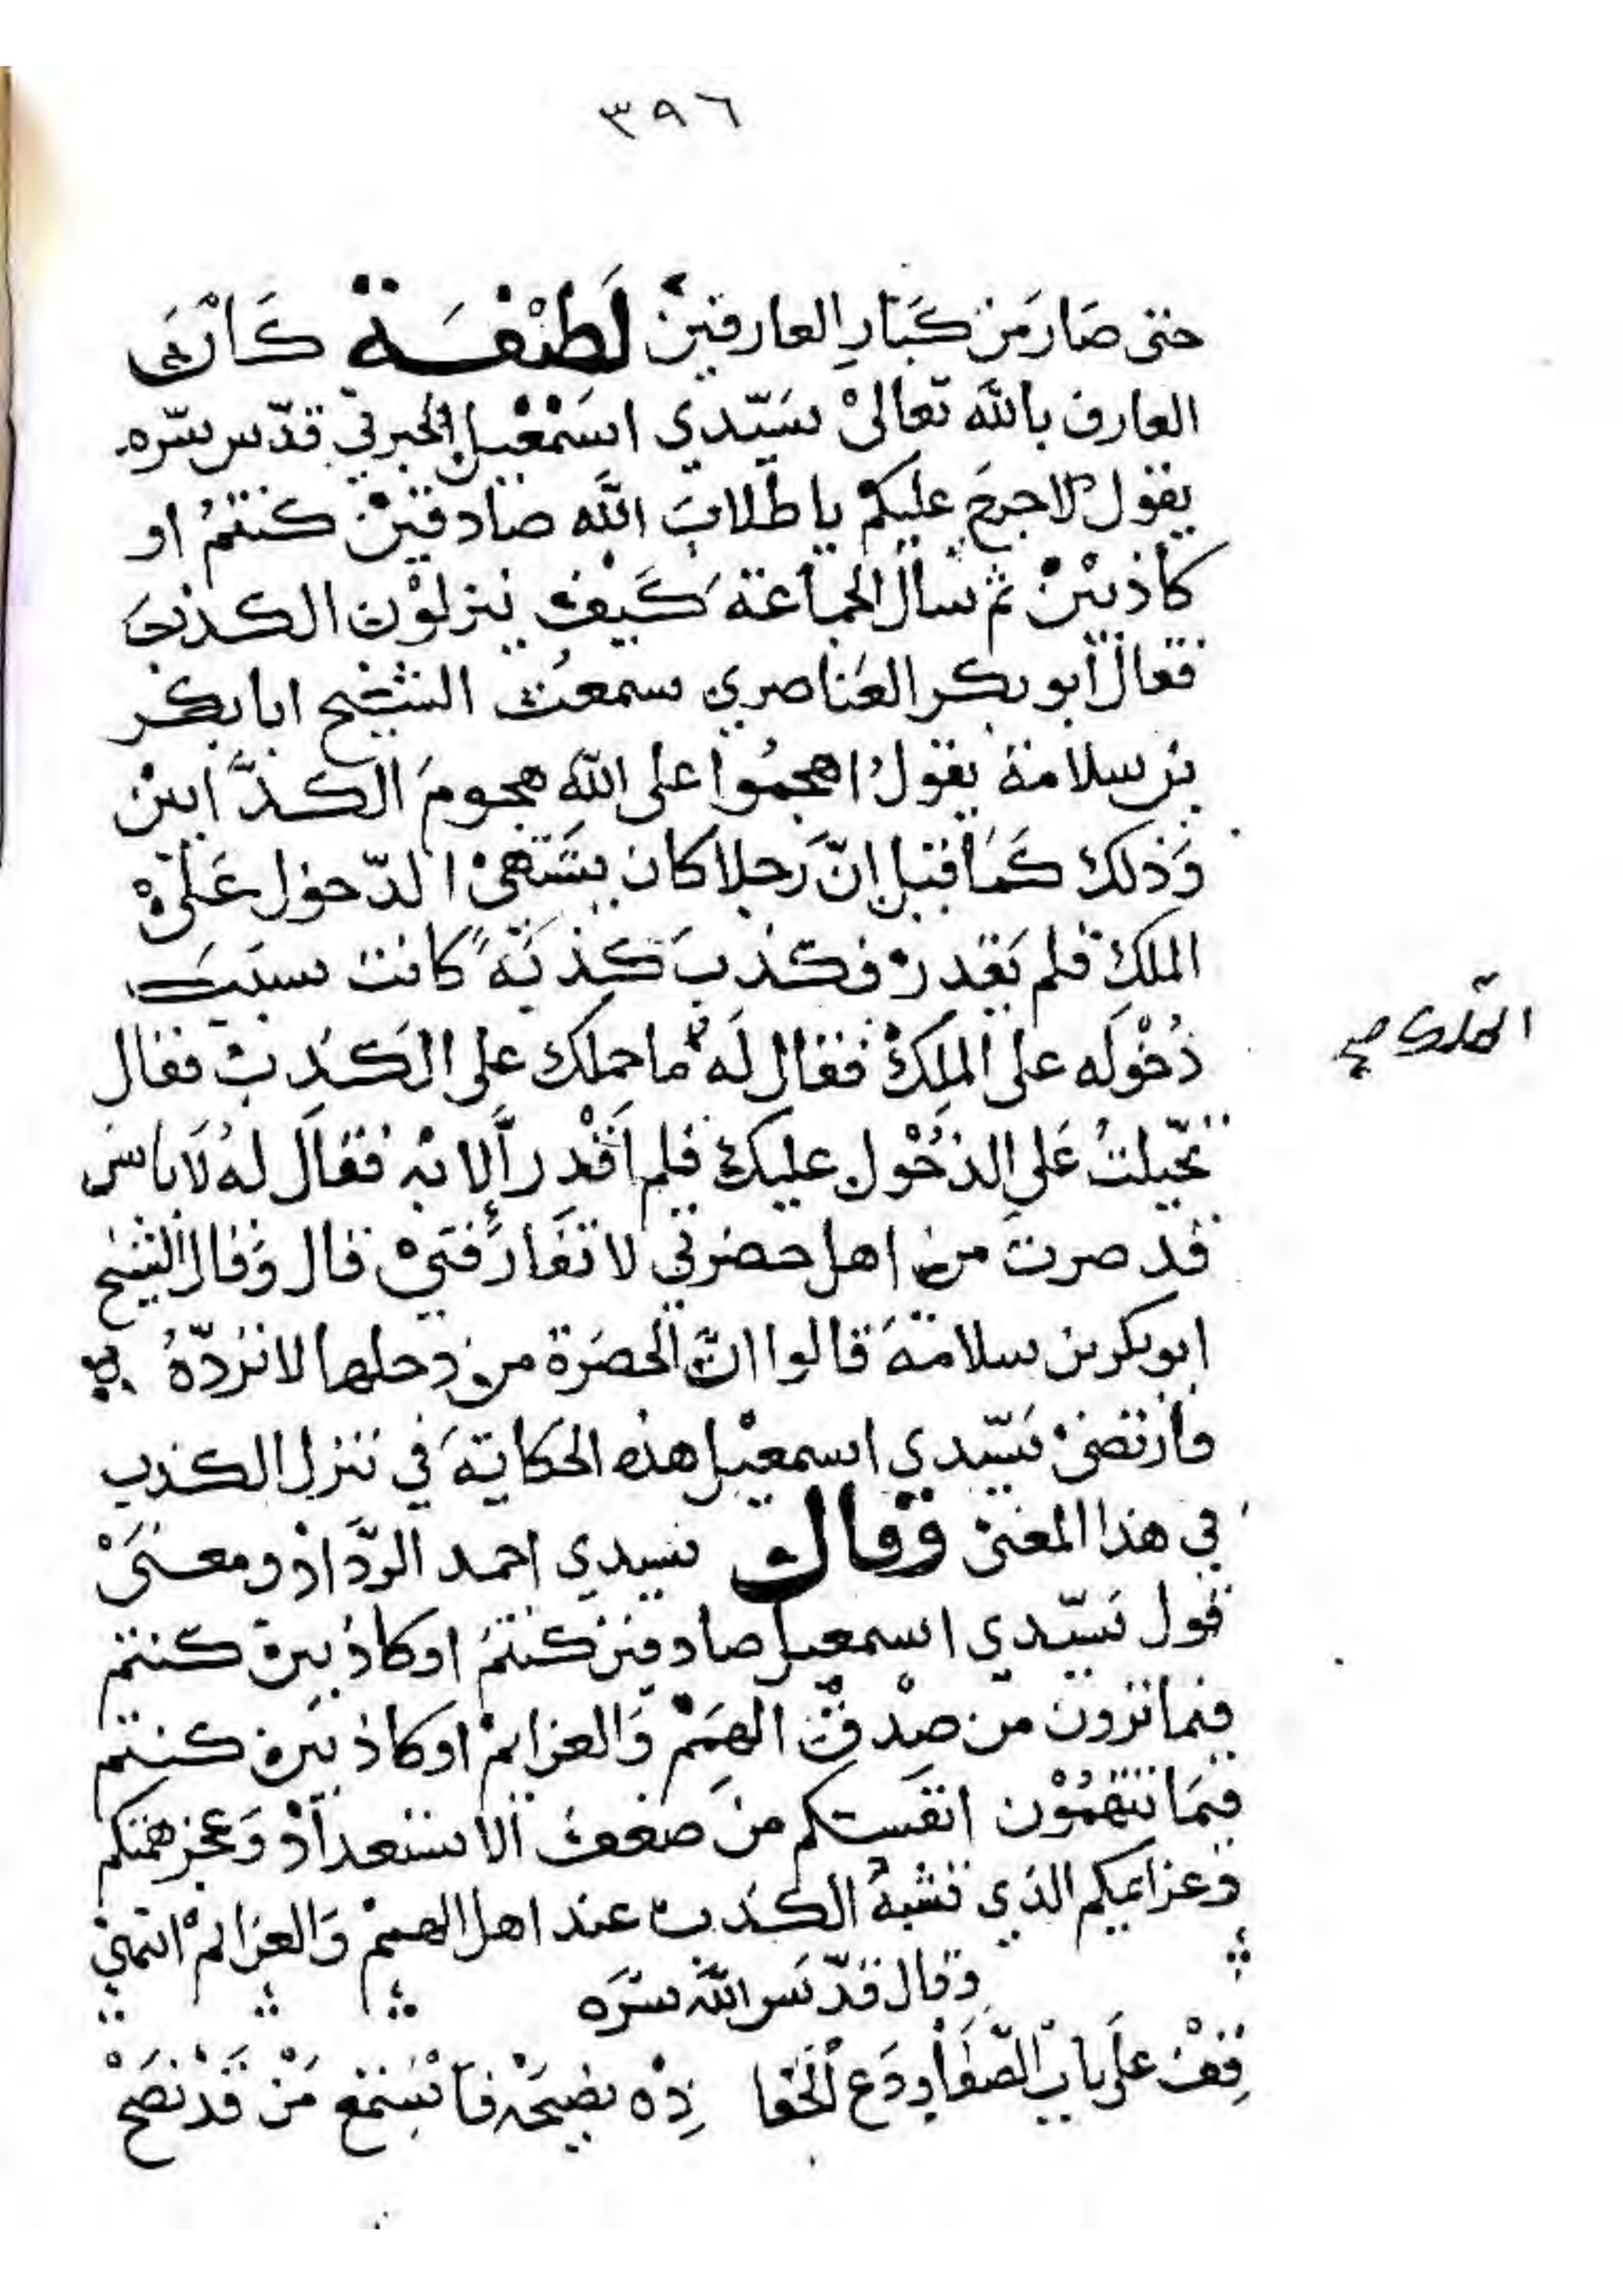 ٣٩٦
حتى صَارَ مَن كَبَارِ العارفينْ لَطِيْفَة كَانَ
العارف بالله تعالىْ سَيّدي اسَمْعْيل الجبرتي قدّس سّره
يقول لا حرجَ عليكمْ يا طلابَ الله صادقيْنْ كنتمُ او
كاذبينْ ثم سأل الجماعة كَيفْ ينزلوْن الكذبَ
فقال أبو بكر العَناصري سمعتُ الشيخ ابا بكر
بن سلامة يقولُ اهجمُوا على الله هجومَ الكذَّابينْ
وَذلك كَمَا قيل إنّ رَجلا كان يشَتهىْ الدّخول عَلىْ
الملكِ فلم يَقدرْ فكذبَ كذبَةً كانت سبَبَ
دُخوْلَه على المَلكْ فقال لَهُ ما حملك على الكَذِبْ فقال
تحّيلتُ عَلى الدخُوْل عليكَ فلم اَقْدِر اِلا بْه فقالَ لهُ لَا باس
قد صرتَ من اهل حضرتي لا تَفَارقَنيْ قال وَقال الشيخ
ابو بكر بن سلامةَ قالوا انّ الحضرَة من دخلها لا تردّهُ
وارتضىْ سَيّدي اسمعيْل هذه الحكايَةَ في تنزل الكذب
في هذا المعنىْ وَقال سيدي احمد الردَّادْ ومعنىْ
قول سَيّدي اسمعيل صادقين كنتمَ او كاذبين كنتم
فيما ترون من صِدْقْ الهمَمْ وَالعزايمْ او كاذبين كنتم
فيمَا تتهمُوْن انفسكم من ضعف الاستعدادْ وَعجز هممكم
وعزايمكم الذي تشبهُ الكذب عند اهل الهممْ وَالعزايمْ انتهىْ
وقال قدّسَ اللّه سّرَه
قِفْ عَلَى باب الصّفَا وِدَعْ الجَفا ذِهْ نصيحَهْ فاسْتمعْ مَنْ قَدْ نصَحْ
الملك صح